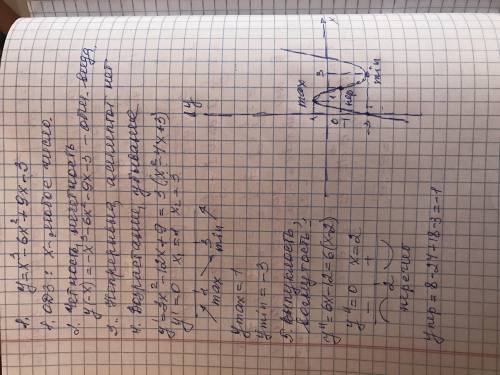 1. y=x³-6x²+9x-3
1. ОДЗ: x-любое число.
2. Четность, нечетность
y(-x)=-x³-6x²-9x-3 - общ. вида
3. Непрерывна, асимптот нет
4. Возрастание, убывание
y'=3x²-12x+9=3(x²-4x+3)
y'=0 x₁=1 x₂=3
1 3
max min
ymax=1
ymin=-3
5. Выпуклость,
вогнутость:
y''=6x-12=6(x-2)
y''=0 x=2
- +
2
перегиб
yпер=8-24+18-3=-1
y
x
max
1
0
1
3
-1
пер
-3
min